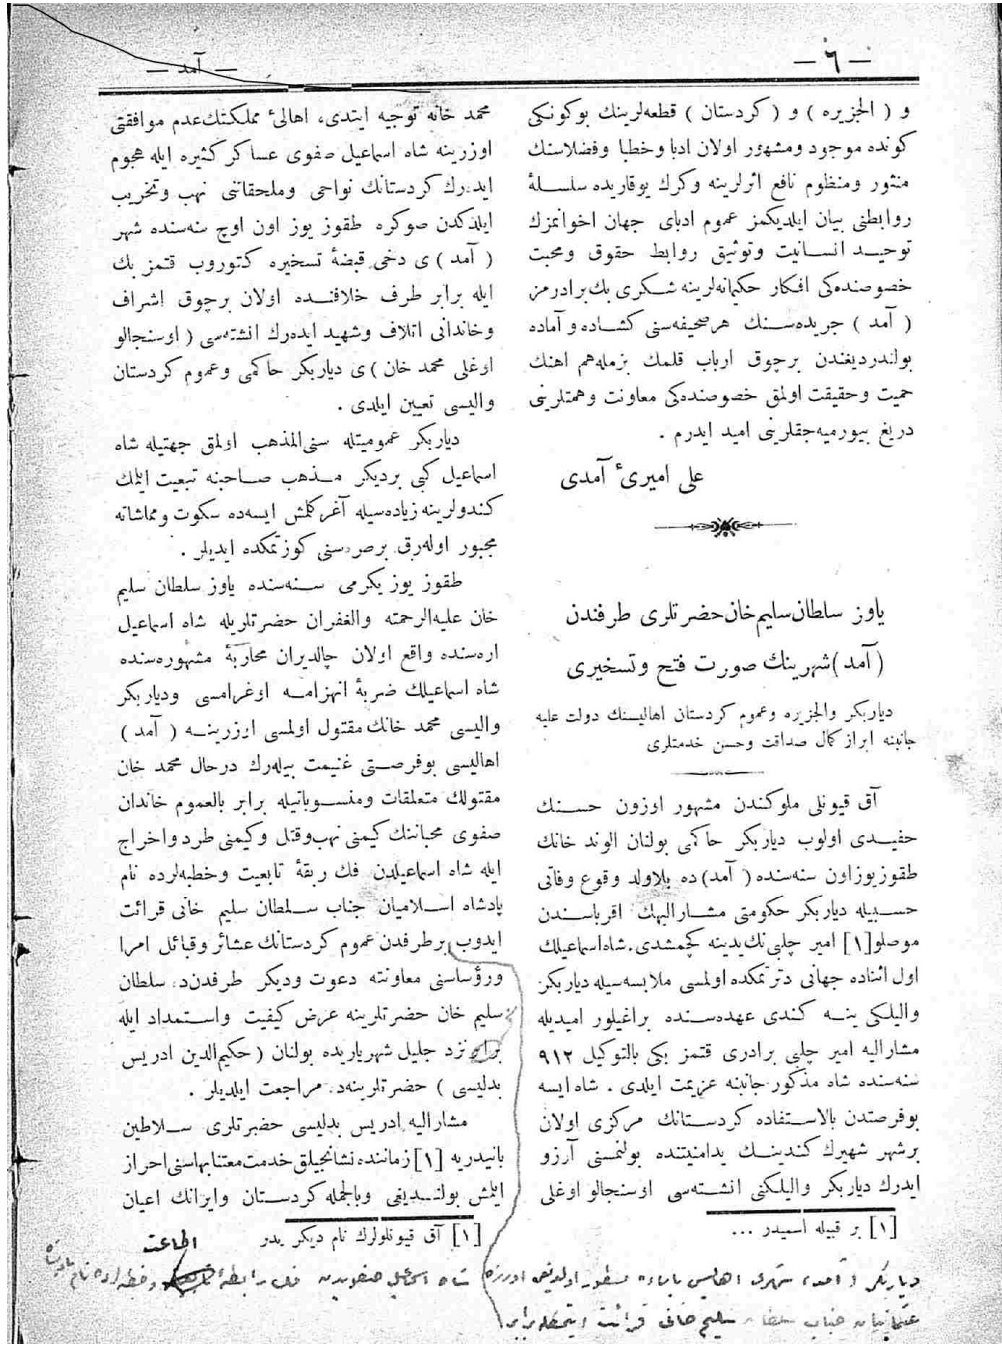 — ٦ —
— آمد —
و ( الجزیره ) و ( کردستان ) قطعه‌لرینك بوکونکی
کونده موجود ومشهور اولان ادبا وخطبا وفضلاسنك
منثور ومنظوم نافع اثرلرینه وکرك یوقاریده سلسلهٔ
روابطنی بیان ایلدیکمز عموم ادبای جهان اخوانمزك
توحید انسانیت وتوثیق روابط حقوق ومحبت
خصوصنده‌کی افکار حکیمانه‌لرینه شکری بك برادرمز
( آمد ) جریده‌سنك هر صحیفه‌سنی کشاده و آماده
بولندردیغندن برچوق ارباب قلمك بزمله هم اهنك
حمیت وحقیقت اولمق خصوصنده‌کی معاونت وهمتلرینی
دریغ بیورمیه‌جقلرینی امید ایدرم .
علی امیرئ آمدی
یاوز سلطان سلیم خان حضرتلری طرفندن
( آمد ) شهرینك صورت فتح وتسخیری
دیاربکر والجزیره وعموم کردستان اهالیسنك دولت علیه
جانبنه ابراز کمال صداقت وحسن خدمتلری
آق قیونلی ملوکندن مشهور اوزون حسنك
حفیدی اولوب دیاربکر حاکمی بولنان الوند خانك
طقوزیوز اون سنه‌سنده ( آمد ) ده بلاولد وقوع وفاتی
حسبیله دیاربکر حکومتی مشارالیهك اقرباسندن
موصلو [١] امیر چلبی‌نك یدینه کچمشدی . شاه اسماعیلك
اول اثناده جهانی دترتمکده اولمسی ملابسه‌سیله دیاربکر
والیلکی ینه کندی عهده‌سنده براغیلور امیدیله
مشارالیه امیر چلبی برادری قتمز بکی بالتوکیل ٩١٢
سنه‌سنده شاه مذکور جانبنه عزیمت ایلدی . شاه ایسه
بوفرصتدن بالاستفاده کردستانك مرکزی اولان
برشهر شهیرك کندینك یدامنیتنده بولنمسنی آرزو
ایدرك دیاربکر والیلکنی انشته‌سی اوسنجالو اوغلی
[١] بر قبیله اسمیدر ...
محمد خانه توجیه ایتدی، اهالئ مملکتك عدم موافقتی
اوزرینه شاه اسماعیل صفوی عساکر کثیره ایله هجوم
ایدرك کردستانك نواحی وملحقاتنی نهب وتخریب
ایلدکدن صوکره طقوز یوز اون اوچ سنه‌سنده شهر
( آمد ) ی دخی قبضهٔ تسخیره کتوروب قتمز بك
ایله برابر طرف خلافنده اولان برچوق اشراف
وخاندانی اتلاف وشهید ایده‌رك انشته‌سی ( اوسنجالو
اوغلی محمد خان ) ی دیاربکر حاکمی وعموم کردستان
والیسی تعیین ایلدی .
دیاربکر عمومیتله سنی‌المذهب اولمق جهتیله شاه
اسماعیل کبی بردیکر مذهب صاحبنه تبعیت ایتمك
کندولرینه زیاده‌سیله آغر کلمش ایسه‌ده سکوت ومماشاته
مجبور اوله‌رق برصره‌سنی کوزتمکده ایدیلر .
طقوز یوز یکرمی سنه‌سنده یاوز سلطان سلیم
خان علیه‌الرحمته والغفران حضرتلریله شاه اسماعیل
اره‌سنده واقع اولان چالدیران محاربهٔ مشهوره‌سنده
شاه اسماعیلك ضربهٔ انهزامه اوغرامسی ودیاربکر
والیسی محمد خانك مقتول اولمسی اوزرینه ( آمد )
اهالیسی بوفرصتی غنیمت بیله‌رك درحال محمد خان
مقتولك متعلقات ومنسوباتیله برابر بالعموم خاندان
صفوی محباننك کیمنی نهب وقتل وکیمنی طرد واخراج
ایله شاه اسماعیلدن فك ربقهٔ تابعیت وخطبه‌لرده نام
پادشاه اسلامیان جناب سلطان سلیم خانی قرائت
ایدوب برطرفدن عموم کردستانك عشائر وقبائل امرا
ورؤساسنی معاونته دعوت ودیکر طرفدن‌ده سلطان
سلیم خان حضرتلرینه عرض کیفیت واستمداد ایله
برابر نزد جلیل شهریاریده بولنان ( حکیم‌الدین ادریس
بدلیسی ) حضرتلرینه‌ده مراجعت ایلدیلر .
مشارالیه ادریس بدلیسی حضرتلری سلاطین
بایندریه [١] زماننده نشانجیلق خدمت معتنابهاسنی احراز
ایتمش بولندیغی وبالجمله کردستان وایرانك اعیان
[١] آق قیونلولرك نام دیکریدر
اطاعت
دیاربکر ( آمد ) شهری اهالیسی
شاه اسماعیل صفویدن فك رابطهٔ
وخطبه‌لرده نام پادشاه
عثمانیان جناب سلطان سلیم خانی قرائت ایتمکله برابر